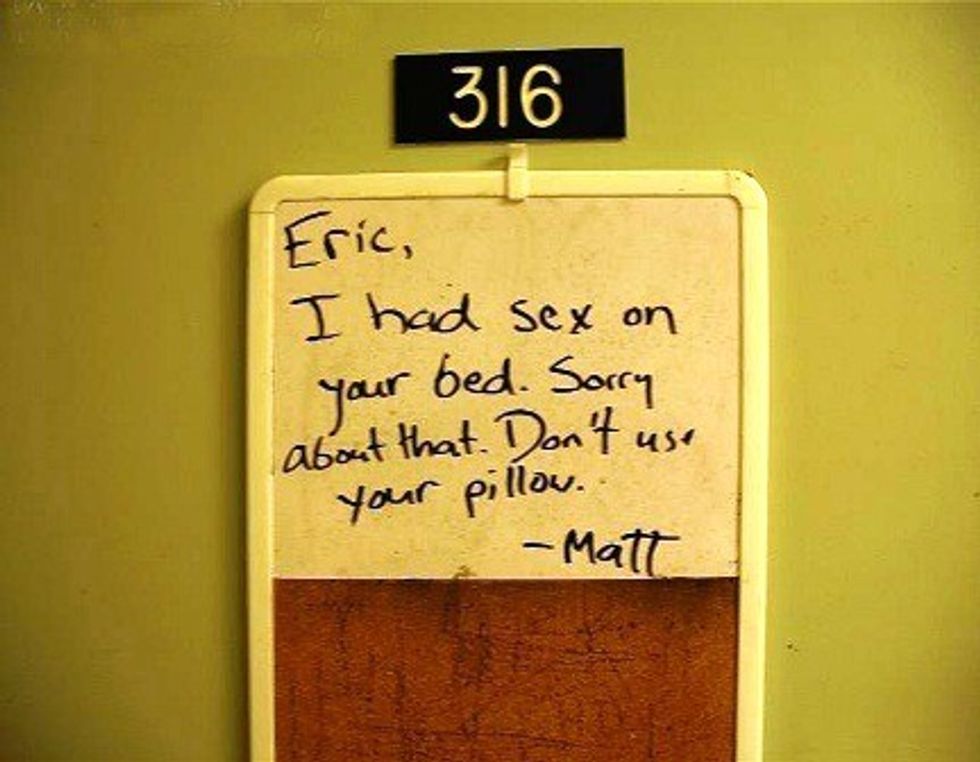 316
Eric,
I had sex on
your bed. Sorry
about that. Don't use
your pillow.
-Matt